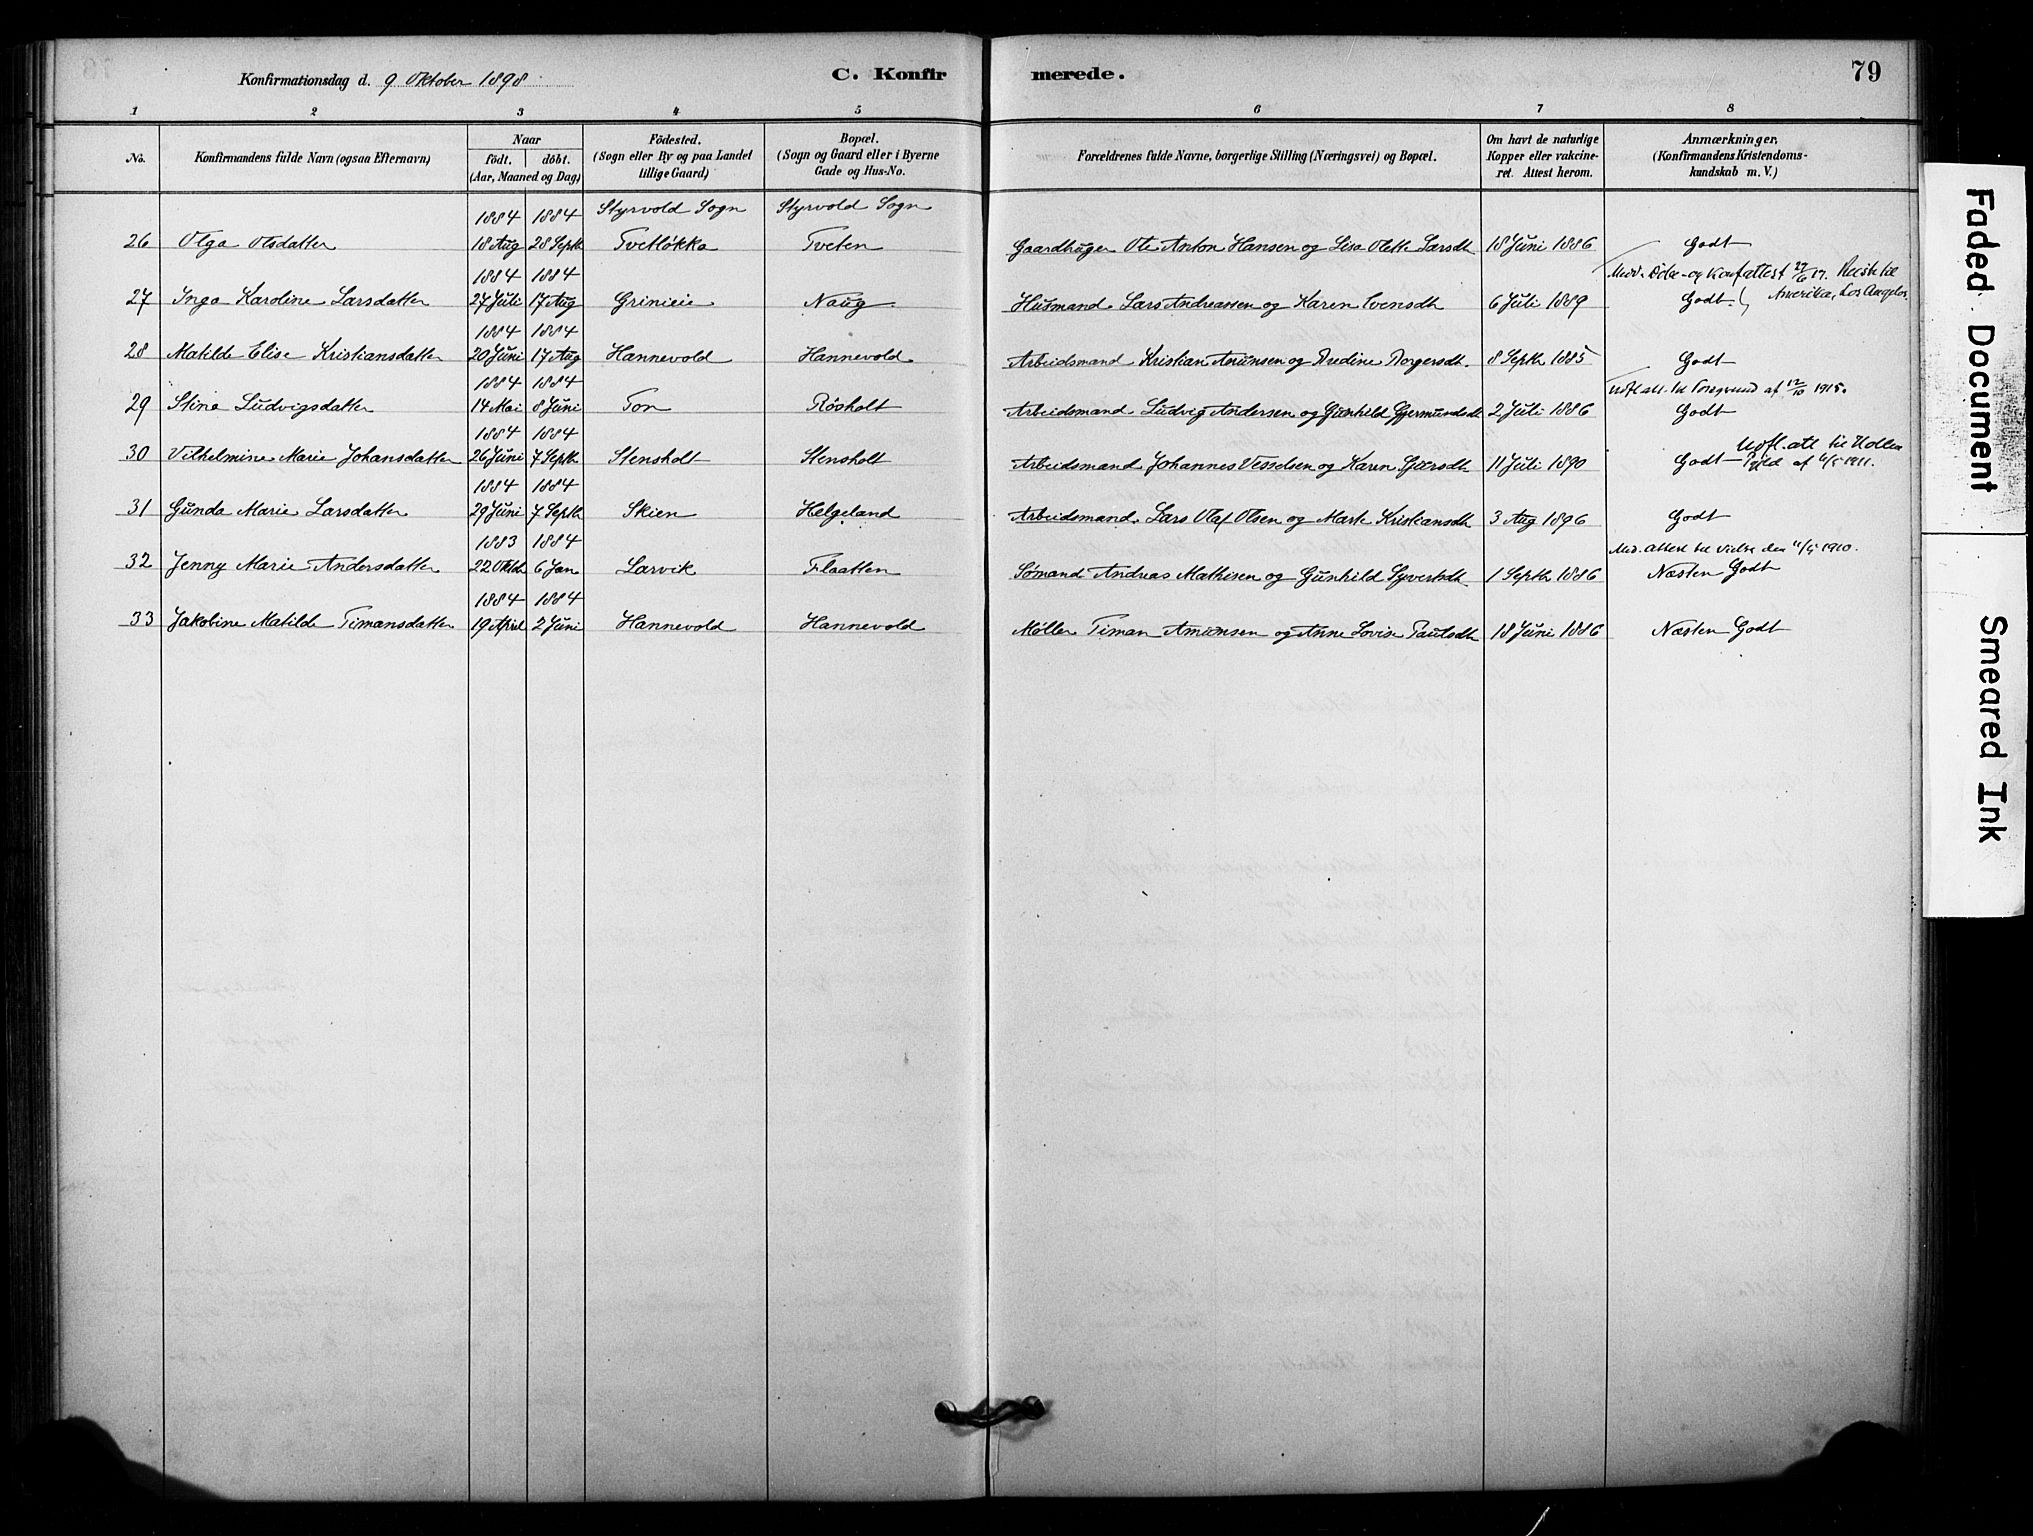 Konfirmationsdag d. 9 Oktober 1898
C. Konfirmerede.
79
1 2 3 4 5 6 7 8
No. Konfirmandens fulde Navn (ogsaa Efternavn) Naar födt. döbt. (Aar, Maaned og Dag) Födested. (Sogn eller By og paa Landet tillige Gaard) Bopæl. (Sogn og Gaard eller i Byerne Gade og Hus-No. Forældrenes fulde Navne, borgerlige Stilling (Næringsvei) og Bopæl. Om havt de naturlige Kopper eller vakcineret. Attest herom. Anmærkninger, (Konfirmandens Kristendomskundskab m. V.)
1884 1884 Styrvold Sogn Styrvold Sogn
26 Olga Olsdatter 18 Aug 28 Septb Tvetløkka Tveten Gaardbruger Ole Anton Hansen og Lise Olette Larsdt 18 Juni 1886 Godt
1884 1884 Medd. Döbe- og Konfattest 27/6 17. Reist til
27 Inga Karoline Larsdatter 27 Juli 17 Aug Grinieie Naug Husmand Lars Andreassen og Karen Svensdt 6 Juli 1889 Godt. Amerika, Los Angelos.
1884 1884
28 Matilde Elise Kristiansdatter 20 Juni 17 Aug Hannevold Hannevold Arbeidsmand Kristian Amunsen og Andine Borgersdt. 8 Septb 1885 Godt
1884 1884 Udfl. att. til Porsgrund af 12/10 1915.
29 Stina Ludvigsdatter 14 Mai 8 Juni Ton Rösholt Arbeidsmand Ludvig Andersen og Gunhild Gjermundsdt 2 Juli 1886 Godt
1884 1884 Udfl. att til
30 Vilhelmine Marie Johansdatter 26 Juni 7 Septb Stensholt Stensholt Arbeidsmand Johannes Vesselsen og Karen 11 Juli 1890 Godt af 6/5 1911.
1884 1884
31 Gunda Marie Larsdatter 29 Juni 7 Septb Skien Helgeland Arbeidsmand Lars Olaf Olsen og Marte Kristiansdt 3 Aug 1896 Godt
1883 1884 Med. attest til vielse den 11/5 1910.
32 Jenny Marie Andersdatter 22 Oktb 6 Jan Larvik Flaatten Sømand Andreas Mathisen og Gunhild Syvertsdt 1 Septb 1886 Næsten Godt
1884 1884
33 Jakobine Matilde Timansdatter 19 April 2 Juni Hannevold Hannevold Møller Timan Amunsen og Anne Lovise Paulsdt 18 Juni 1886 Næsten Godt
Faded Document
Smeared Ink